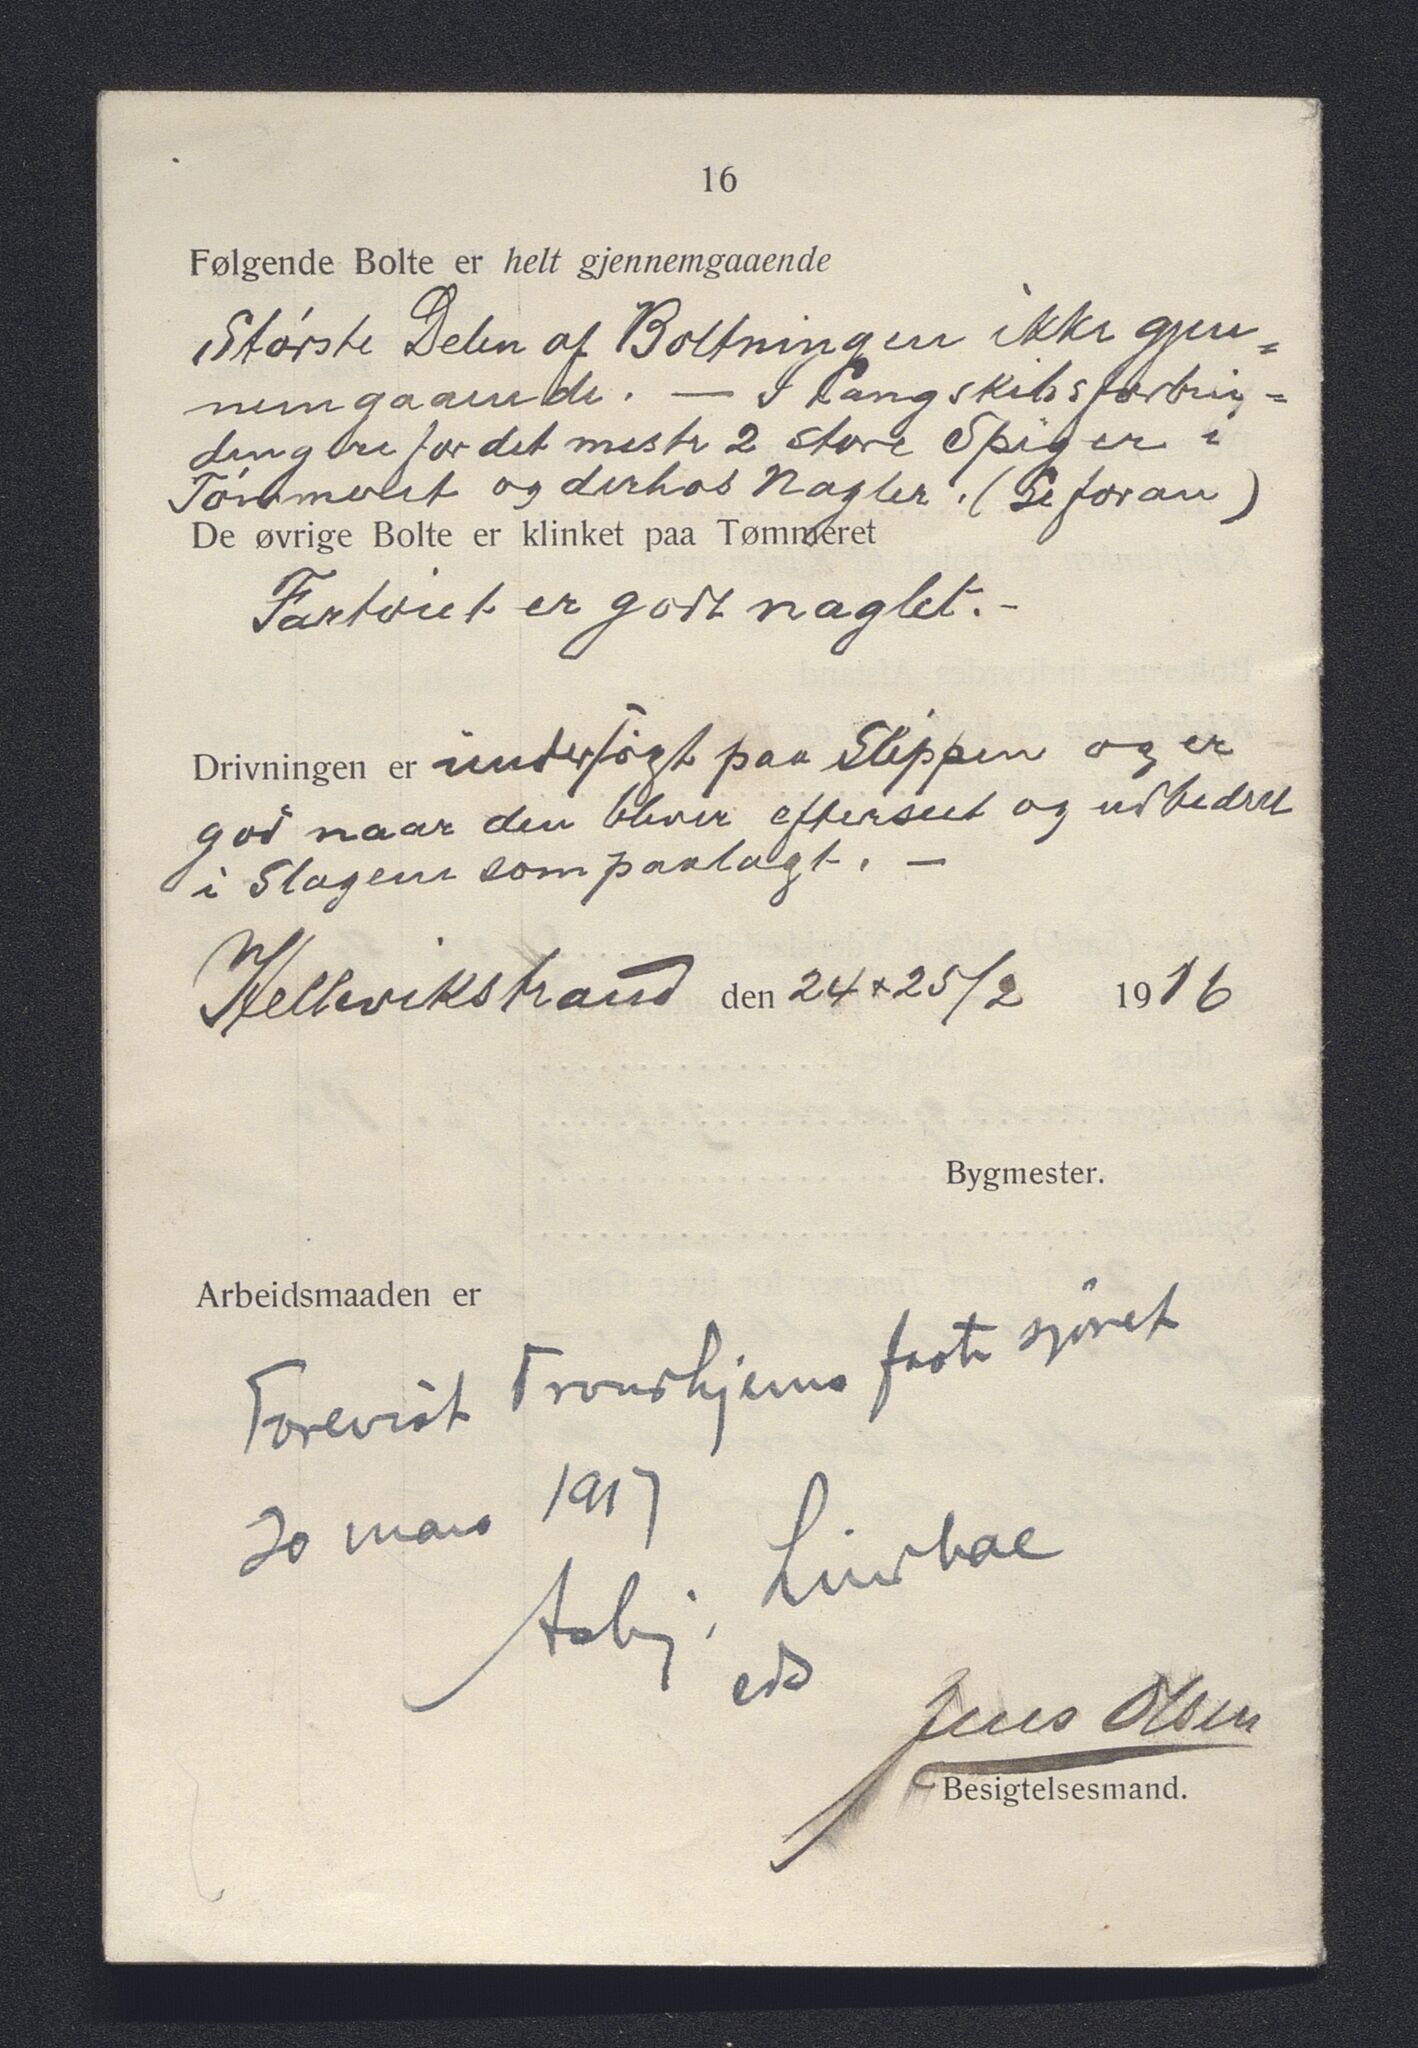 16
Følgende Bolte er helt gjennemgaaende
Største Delen af Boltningen ikke gjen=
nemgaaende. — I Langskibsforbin=
dingene for det meste 2 store Spiger i
Tømmeret og derhos Nagler. (Se foran)
De øvrige Bolte er klinket paa Tømmeret
Fartøiet er godt naglet. -
Drivningen er undersøgt paa Slippen og er
god naar den bliver efterseet og udbedret
i Slagene som paalagt. —
Hellevikstrand den 24 + 25/2 1916
Bygmester.
Arbeidsmaaden er
Forevist Trondhjems faste sjøret
20 mars 1917
Asbj. Lindboe
eds
Jens Olsen
Besigtelsesmand.